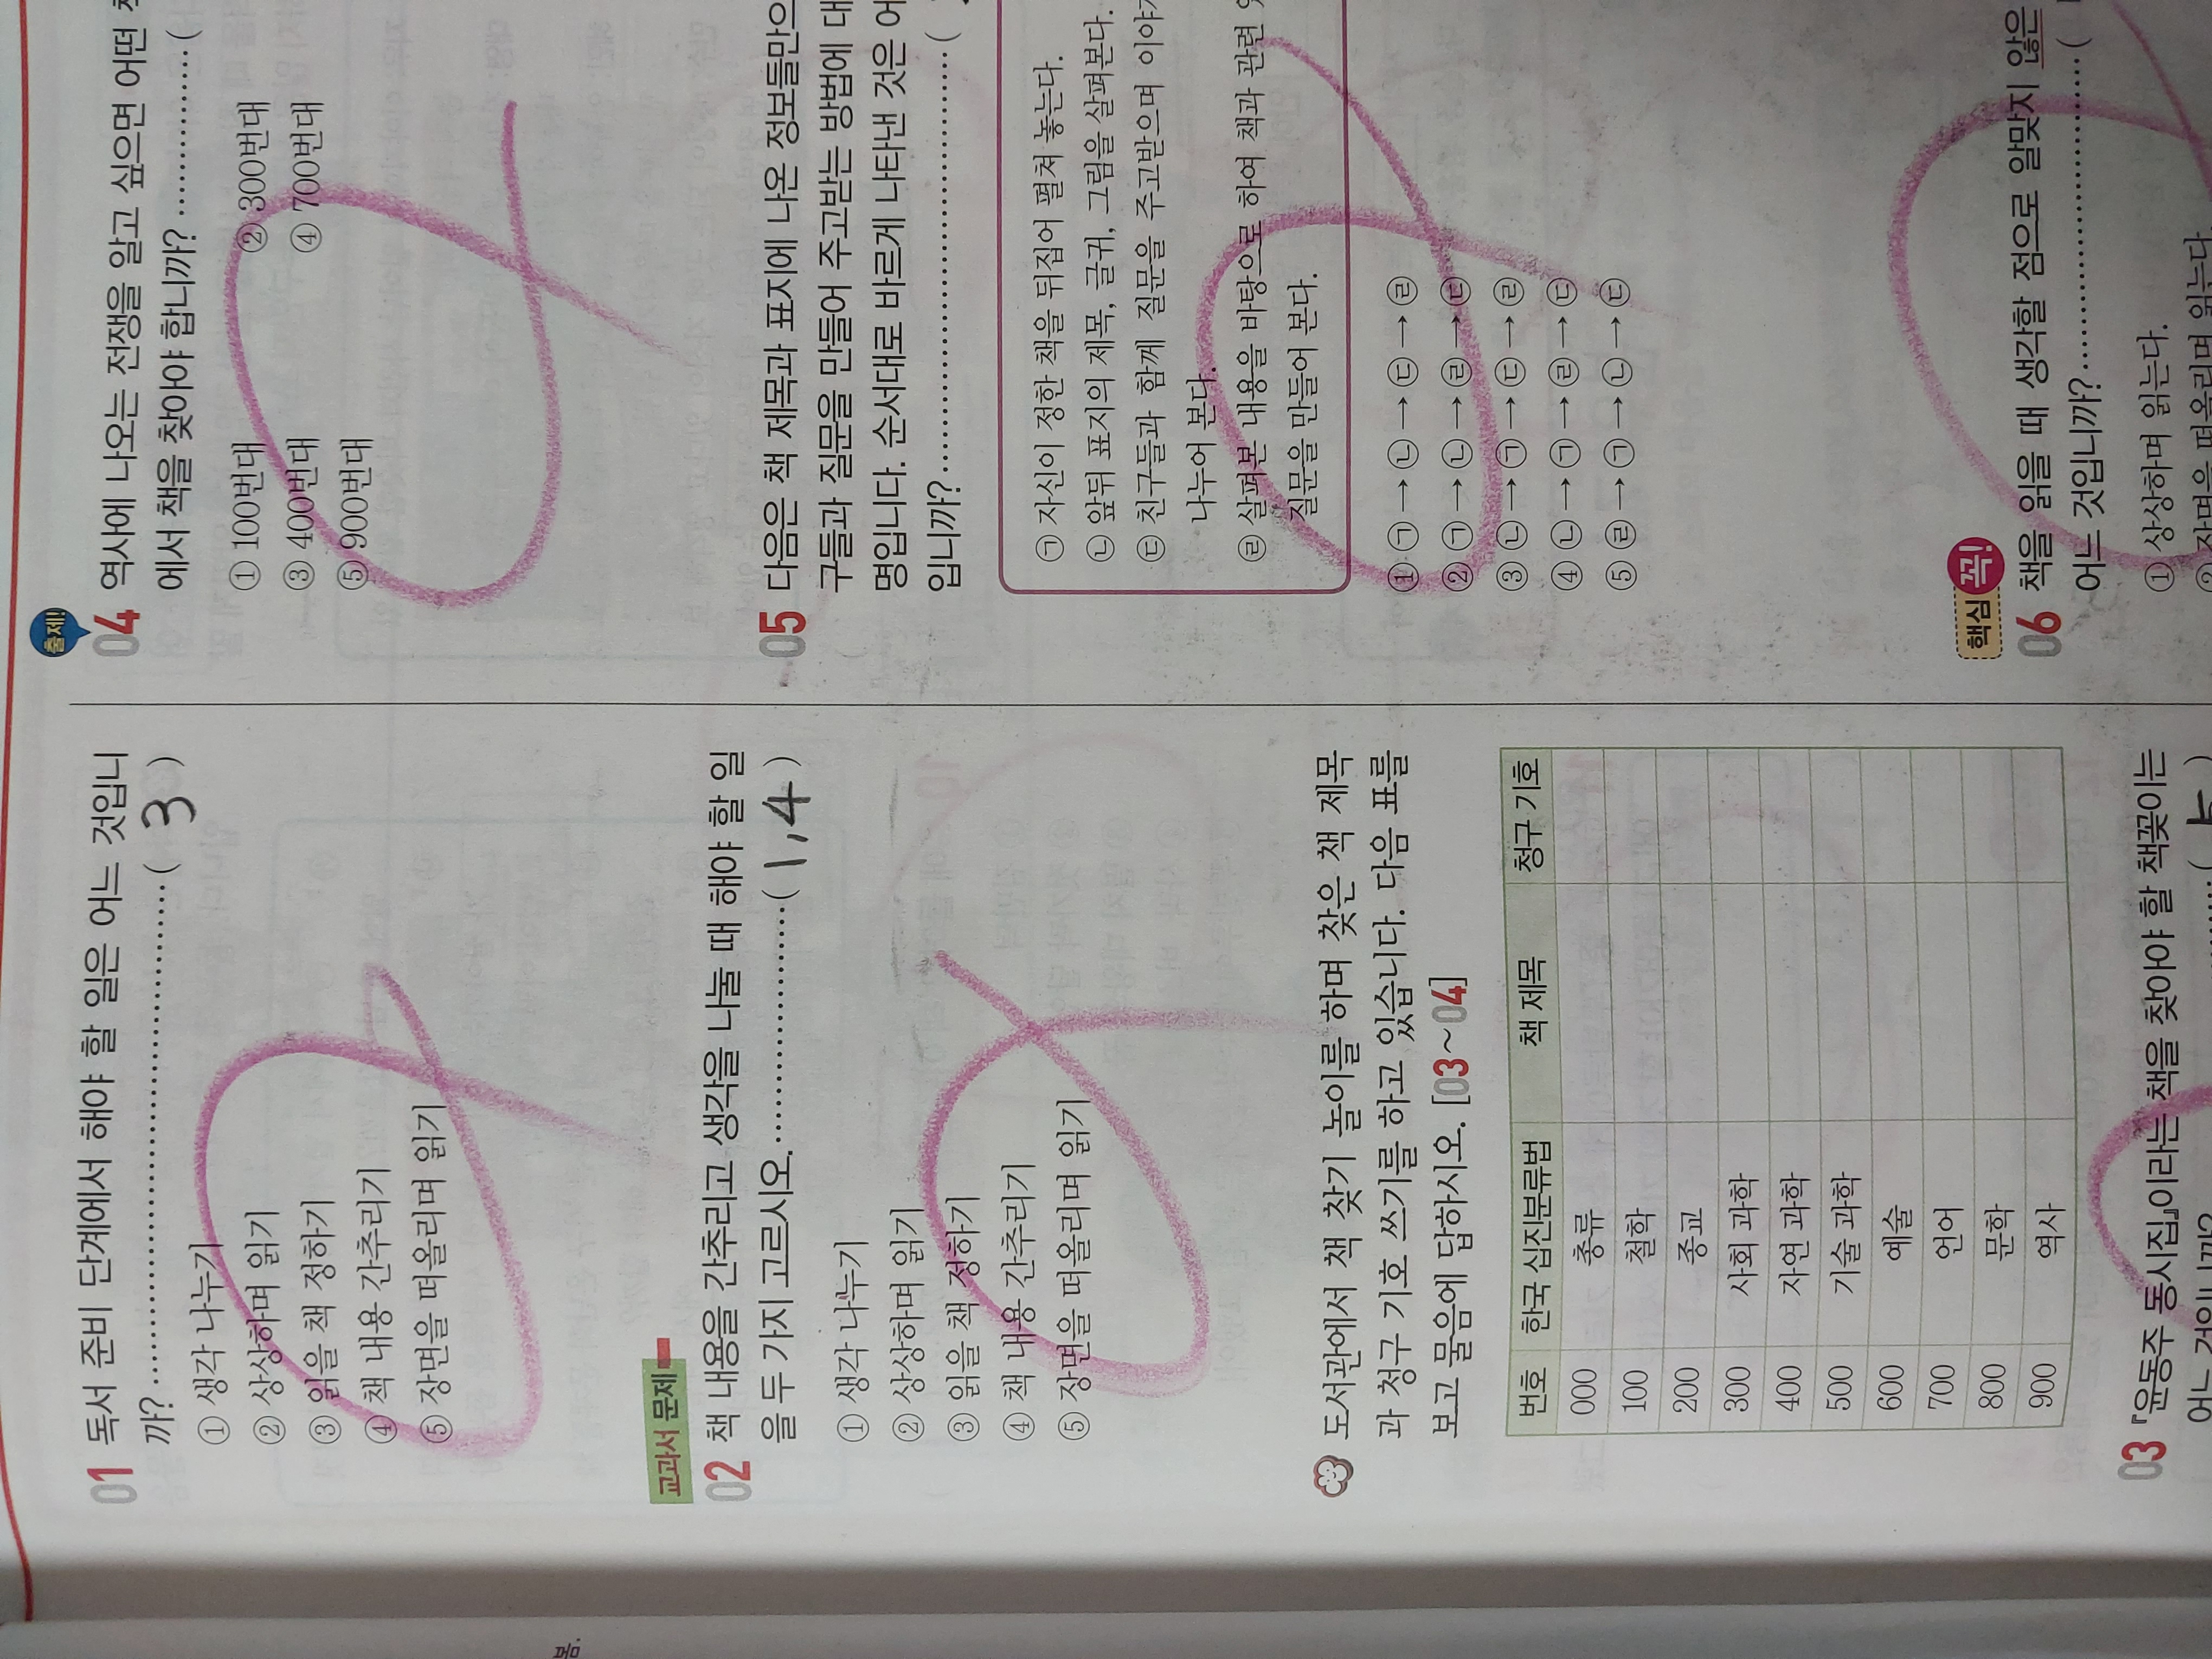 01 독서 준비 단계에서 해야 할 일은 어느 것입니
까? ( 3 )
① 생각 나누기
② 상상하며 읽기
③ 읽을 책 정하기
④ 책 내용 간추리기
⑤ 장면을 떠올리며 읽기
교과서 문제
02 책 내용을 간추리고 생각을 나눌 때 해야 할 일
을 두 가지 고르시오. ( 1, 4 )
① 생각 나누기
② 상상하며 읽기
③ 읽을 책 정하기
④ 책 내용 간추리기
⑤ 장면을 떠올리며 읽기
도서관에서 책 찾기 놀이를 하며 찾은 책 제목
과 청구 기호 쓰기를 하고 있습니다. 다음 표를
보고 물음에 답하시오. [03~04]
번호 한국 십진분류법 책 제목 청구 기호
000 총류
100 철학
200 종교
300 사회 과학
400 자연 과학
500 기술 과학
600 예술
700 언어
800 문학
900 역사
03 『윤동주 동시집』이라는 책을 찾아야 할 책꽂이는
어느 것입니까?
출제!
04 역사에 나오는 전쟁을 알고 싶으면 어떤
에서 책을 찾아야 합니까? (
① 100번대 ② 300번대
③ 400번대 ④ 700번대
⑤ 900번대
05 다음은 책 제목과 표지에 나온 정보들만으
구들과 질문을 만들어 주고받는 방법에 대
명입니다. 순서대로 바르게 나타낸 것은 어
입니까? (
㉠ 자신이 정한 책을 뒤집어 펼쳐 놓는다.
㉡ 앞뒤 표지의 제목, 글귀, 그림을 살펴본다.
㉢ 친구들과 함께 질문을 주고받으며 이야기
나누어 본다.
㉣ 살펴본 내용을 바탕으로 하여 책과 관련
질문을 만들어 본다.
① ㉠→㉡→㉢→㉣
② ㉠→㉡→㉣→㉢
③ ㉡→㉠→㉢→㉣
④ ㉡→㉠→㉣→㉢
⑤ ㉣→㉠→㉡→㉢
핵심 꼭!
06 책을 읽을 때 생각할 점으로 알맞지 않은
어느 것입니까? (
① 상상하며 읽는다.
② 장면을 떠올리며 읽는다.
봄.